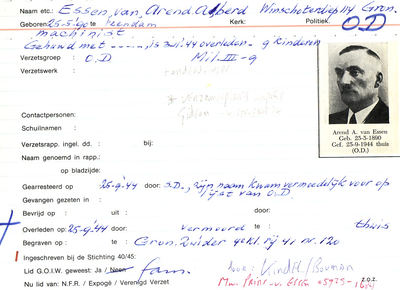 Naam etc.: Essen, van Arend Alberd Winschoterdiep 114 Gron.
Geboren 25-5-'90 te Veendam Kerk: Politiek: O.D
machinist
Gehuwd met is 3 overleden - 9 kinderen
Verzetsgroep : O.D Mil. III-9
Verzetswerk :
Contactpersonen:
Schuilnaam :
Verzetsrapp. ingel. dd. : bij:
Naam genoemd in rapp.:
op bladzijde:
Arend A. van Essen
Geb. 25-5-1890
Gef. 25-9-1944 thuis
(O.D.)
Gearresteerd op 25-9-'44 door: S.D., zijn naam kwam vermoedelijk voor op
Gevangen gezeten in : lijst van O.D.
Bevrijd op : uit : door :
Overleden op : 25-9-'44 door: vermoord te : thuis
Begraven op : te : Gron. Zuider 4e kl. rij 41 no. 120
Ingeschreven bij de Stichting 40/45:
Lid G.O.I.W. geweest: Ja / Neen fam. door: Kindel/Bouman
Nu lid van: N.F.R. / Expogé / Verenigd Verzet Mw. Prins-v. Essen 05925-1681